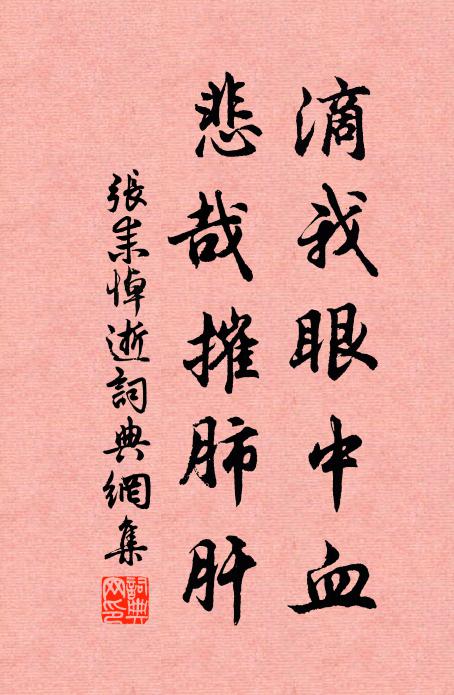 滴我眼中血
悲哉摧肺肝
張耒悼逝詞典網集
詞典網印